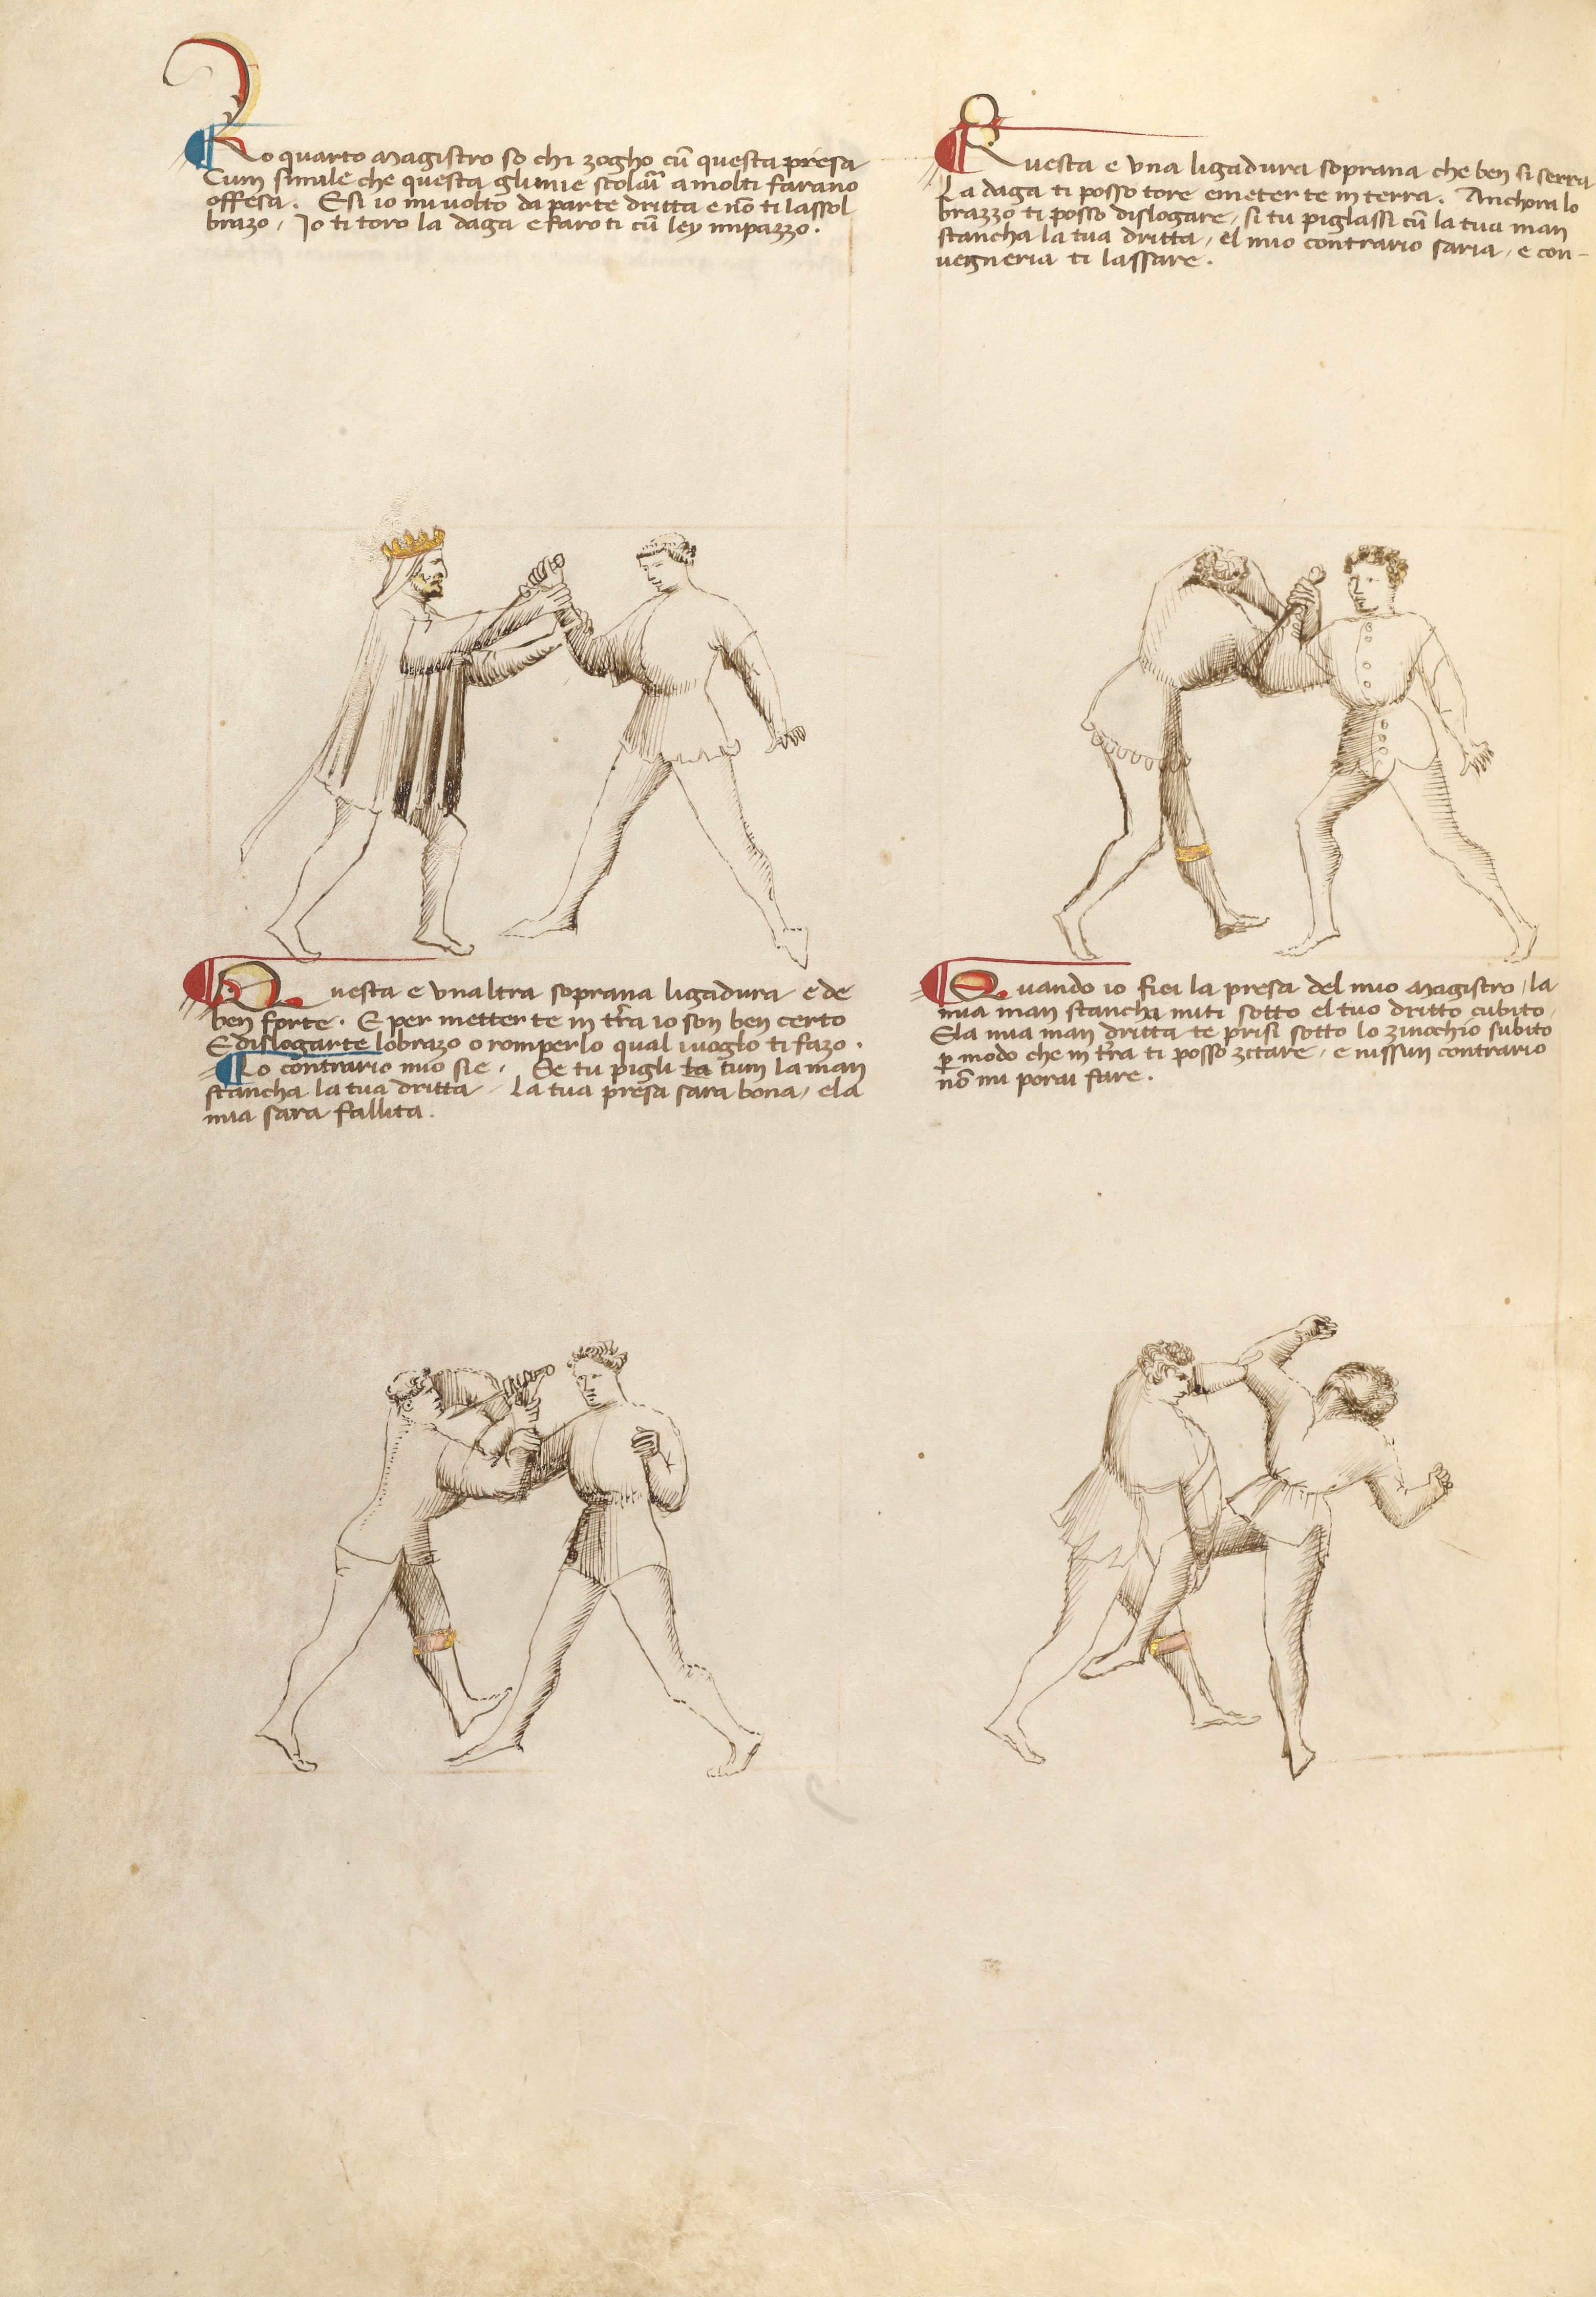 Lo quarto magistro so chi zogho cū questa presa
Cum simile che questa gli mie scolarī a molti farano
offesa. E si io mi volto da parte dritta e nō ti lassol
brazo, Io ti toro la daga e faroti cū ley impazzo.
Questa e una ligadura soprana che ben si serra
La daga ti posso tore e meter te in terra. Anchora lo
brazzo ti posso dislogare, si tu piglassi cū la tua man
stancha la tua dritta, el mio contrario saria, e con-
vegneria ti lassare.
Questa e unaltra soprana ligadura e de
ben forte. E per metter te in tr̄a io son ben certo
E dislogarte lo brazo o romperlo qual i voglo ti fazo.
Lo contrario mio sie, Se tu pigli ta cum la man
stancha la tua dritta La tua presa sara bona, e la
mia sara fallita.
Quando io fici la presa del mio magistro, la
mia man stancha miti sotto el tuo dritto cubito,
E la mia man dritta te prisi sotto lo zinochio subito
ꝑ modo che in tr̄a ti posso zitare, e nissun contrario
nō mi porai fare.